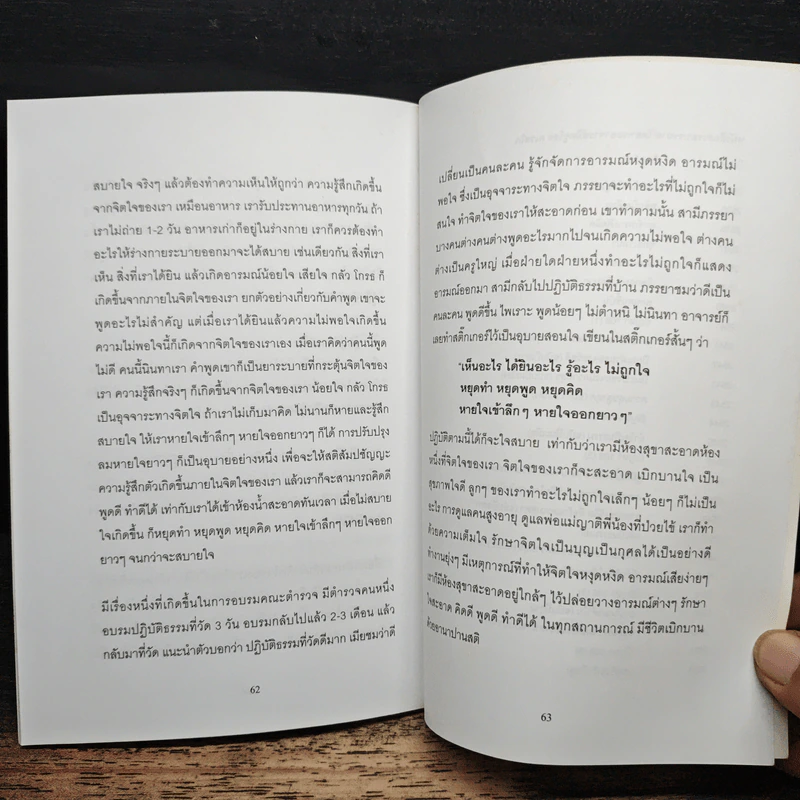 สบายใจ จริงๆ แล้วต้องทำความเห็นให้ถูกว่า ความรู้สึกเกิดขึ้น
จากจิตใจของเรา เหมือนอาหาร เรารับประทานอาหารทุกวัน ถ้า
เราไม่ถ่าย 1-2 วัน อาหารเก่าก็อยู่ในร่างกาย เราก็ควรต้องทำ
อะไรให้ร่างกายระบายออกมาจะได้สบาย เช่นเดียวกัน สิ่งที่เรา
เห็น สิ่งที่เราได้ยิน แล้วเกิดอารมณ์น้อยใจ เสียใจ กลัว โกรธ ก็
เกิดขึ้นจากภายในจิตใจของเรา ยกตัวอย่างเกี่ยวกับคำพูด เขาจะ
พูดอะไรไม่สำคัญ แต่เมื่อเราได้ยินแล้วความไม่พอใจเกิดขึ้น
ความไม่พอใจนี้ก็เกิดจากจิตใจของเราเอง เมื่อเราคิดว่าคนนี้พูด
ไม่ดี คนนี้นินทาเรา คำพูดเขาก็เป็นยาระบายที่กระตุ้นจิตใจของ
เรา ความรู้สึกจริงๆ ก็เกิดขึ้นจากจิตใจของเรา น้อยใจ กลัว โกรธ
เป็นอุจจาระทางจิตใจ ถ้าเราไม่เก็บมาคิด ไม่นานก็หายและรู้สึก
สบายใจ ให้เราหายใจเข้าลึกๆ หายใจออกยาวๆ ก็ได้ การปรับปรุง
ลมหายใจยาวๆ ก็เป็นอุบายอย่างหนึ่ง เพื่อจะให้สติสัมปชัญญะ
ความรู้สึกตัวเกิดขึ้นภายในจิตใจของเรา แล้วเราก็จะสามารถคิดดี
พูดดี ทำดีได้ เท่ากับเราได้เข้าห้องน้ำสะอาดทันเวลา เมื่อไม่สบาย
ใจเกิดขึ้น ก็หยุดทำ หยุดพูด หยุดคิด หายใจเข้าลึกๆ หายใจออก
ยาวๆ จนกว่าจะสบายใจ
มีเรื่องหนึ่งที่เกิดขึ้นในการอบรมคณะตำรวจ มีตำรวจคนหนึ่ง
อบรมปฏิบัติธรรมที่วัด 3 วัน อบรมกลับไปแล้ว 2-3 เดือน แล้ว
กลับมาที่วัด แนะนำตัวบอกว่า ปฏิบัติธรรมที่วัดดีมาก เมียชมว่าดี
62
เปลี่ยนเป็นคนละคน รู้จักจัดการอารมณ์หงุดหงิด อารมณ์ไม่
พอใจ ซึ่งเป็นอุจจาระทางจิตใจ ภรรยาจะทำอะไรที่ไม่ถูกใจก็ไม่
สนใจ ทำจิตใจของเราให้สะอาดก่อน เขาทำตามนั้น สามีภรรยา
บางคนต่างคนต่างพูดอะไรมากไปจนเกิดความไม่พอใจ ต่างคน
ต่างเป็นครูใหญ่ เมื่อฝ่ายใดฝ่ายหนึ่งทำอะไรไม่ถูกใจก็แสดง
อารมณ์ออกมา สามีกลับไปปฏิบัติธรรมที่บ้าน ภรรยาชมว่าดีเป็น
คนละคน พูดดีขึ้น ไพเราะ พูดน้อยๆ ไม่ตำหนิ ไม่นินทา อาจารย์ก็
เลยทำสติ๊กเกอร์ไว้เป็นอุบายสอนใจ เขียนในสติ๊กเกอร์สั้นๆ ว่า
"เห็นอะไร ได้ยินอะไร รู้อะไร ไม่ถูกใจ
หยุดทำ หยุดพูด หยุดคิด
หายใจเข้าลึกๆ หายใจออกยาวๆ"
ปฏิบัติตามนี้ได้ก็จะใจสบาย เท่ากับว่าเรามีห้องสุขาสะอาดห้อง
หนึ่งที่จิตใจของเรา จิตใจของเราก็จะสะอาด เบิกบานใจ เป็น
สุขภาพใจดี ลูกๆ ของเราทำอะไรไม่ถูกใจเล็กๆ น้อยๆ ก็ไม่เป็น
อะไร การดูแลคนสูงอายุ ดูแลพ่อแม่ญาติพี่น้องที่ป่วยไข้ เราก็ทำ
ด้วยความเต็มใจ รักษาจิตใจเป็นบุญเป็นกุศลได้เป็นอย่างดี
ทำงานยุ่งๆ มีเหตุการณ์ที่ทำให้จิตใจหงุดหงิด อารมณ์เสียง่ายๆ
เราก็มีห้องสุขาสะอาดอยู่ใกล้ๆ ไว้ปล่อยวางอารมณ์ต่างๆ รักษา
ใจสะอาด คิดดี พูดดี ทำดีได้ ในทุกสถานการณ์ มีชีวิตเบิกบาน
ด้วยอานาปานสติ
63